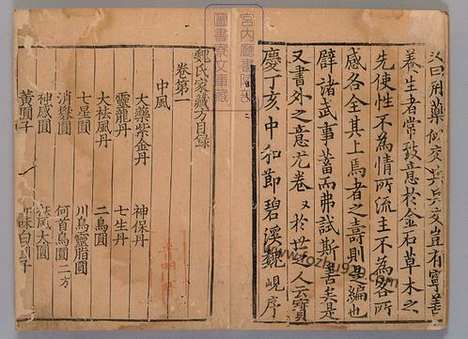 曰用藥似交兵兵交豈有寧善
養生者常致意於金石草木之
先使性不為情所流主不為客所
感各全其上焉者之壽則是編也
辟諸武事蓄而弗試斯善矣是
又書外之意尤卷々於世人云寶
慶丁亥中和節碧溪魏峴序
魏氏家藏方目錄
卷第一
中風
大藥紫金丹
神保丹
靈龍丹
七生丹
大祛風丹
二烏圓
七星圓
川烏靈脂圓
消𩑦圓
何首烏圓二方
神感圓
祛風太圓
黃圓子
味白圓子
宮內廳書陵部
圖書寮文庫藏